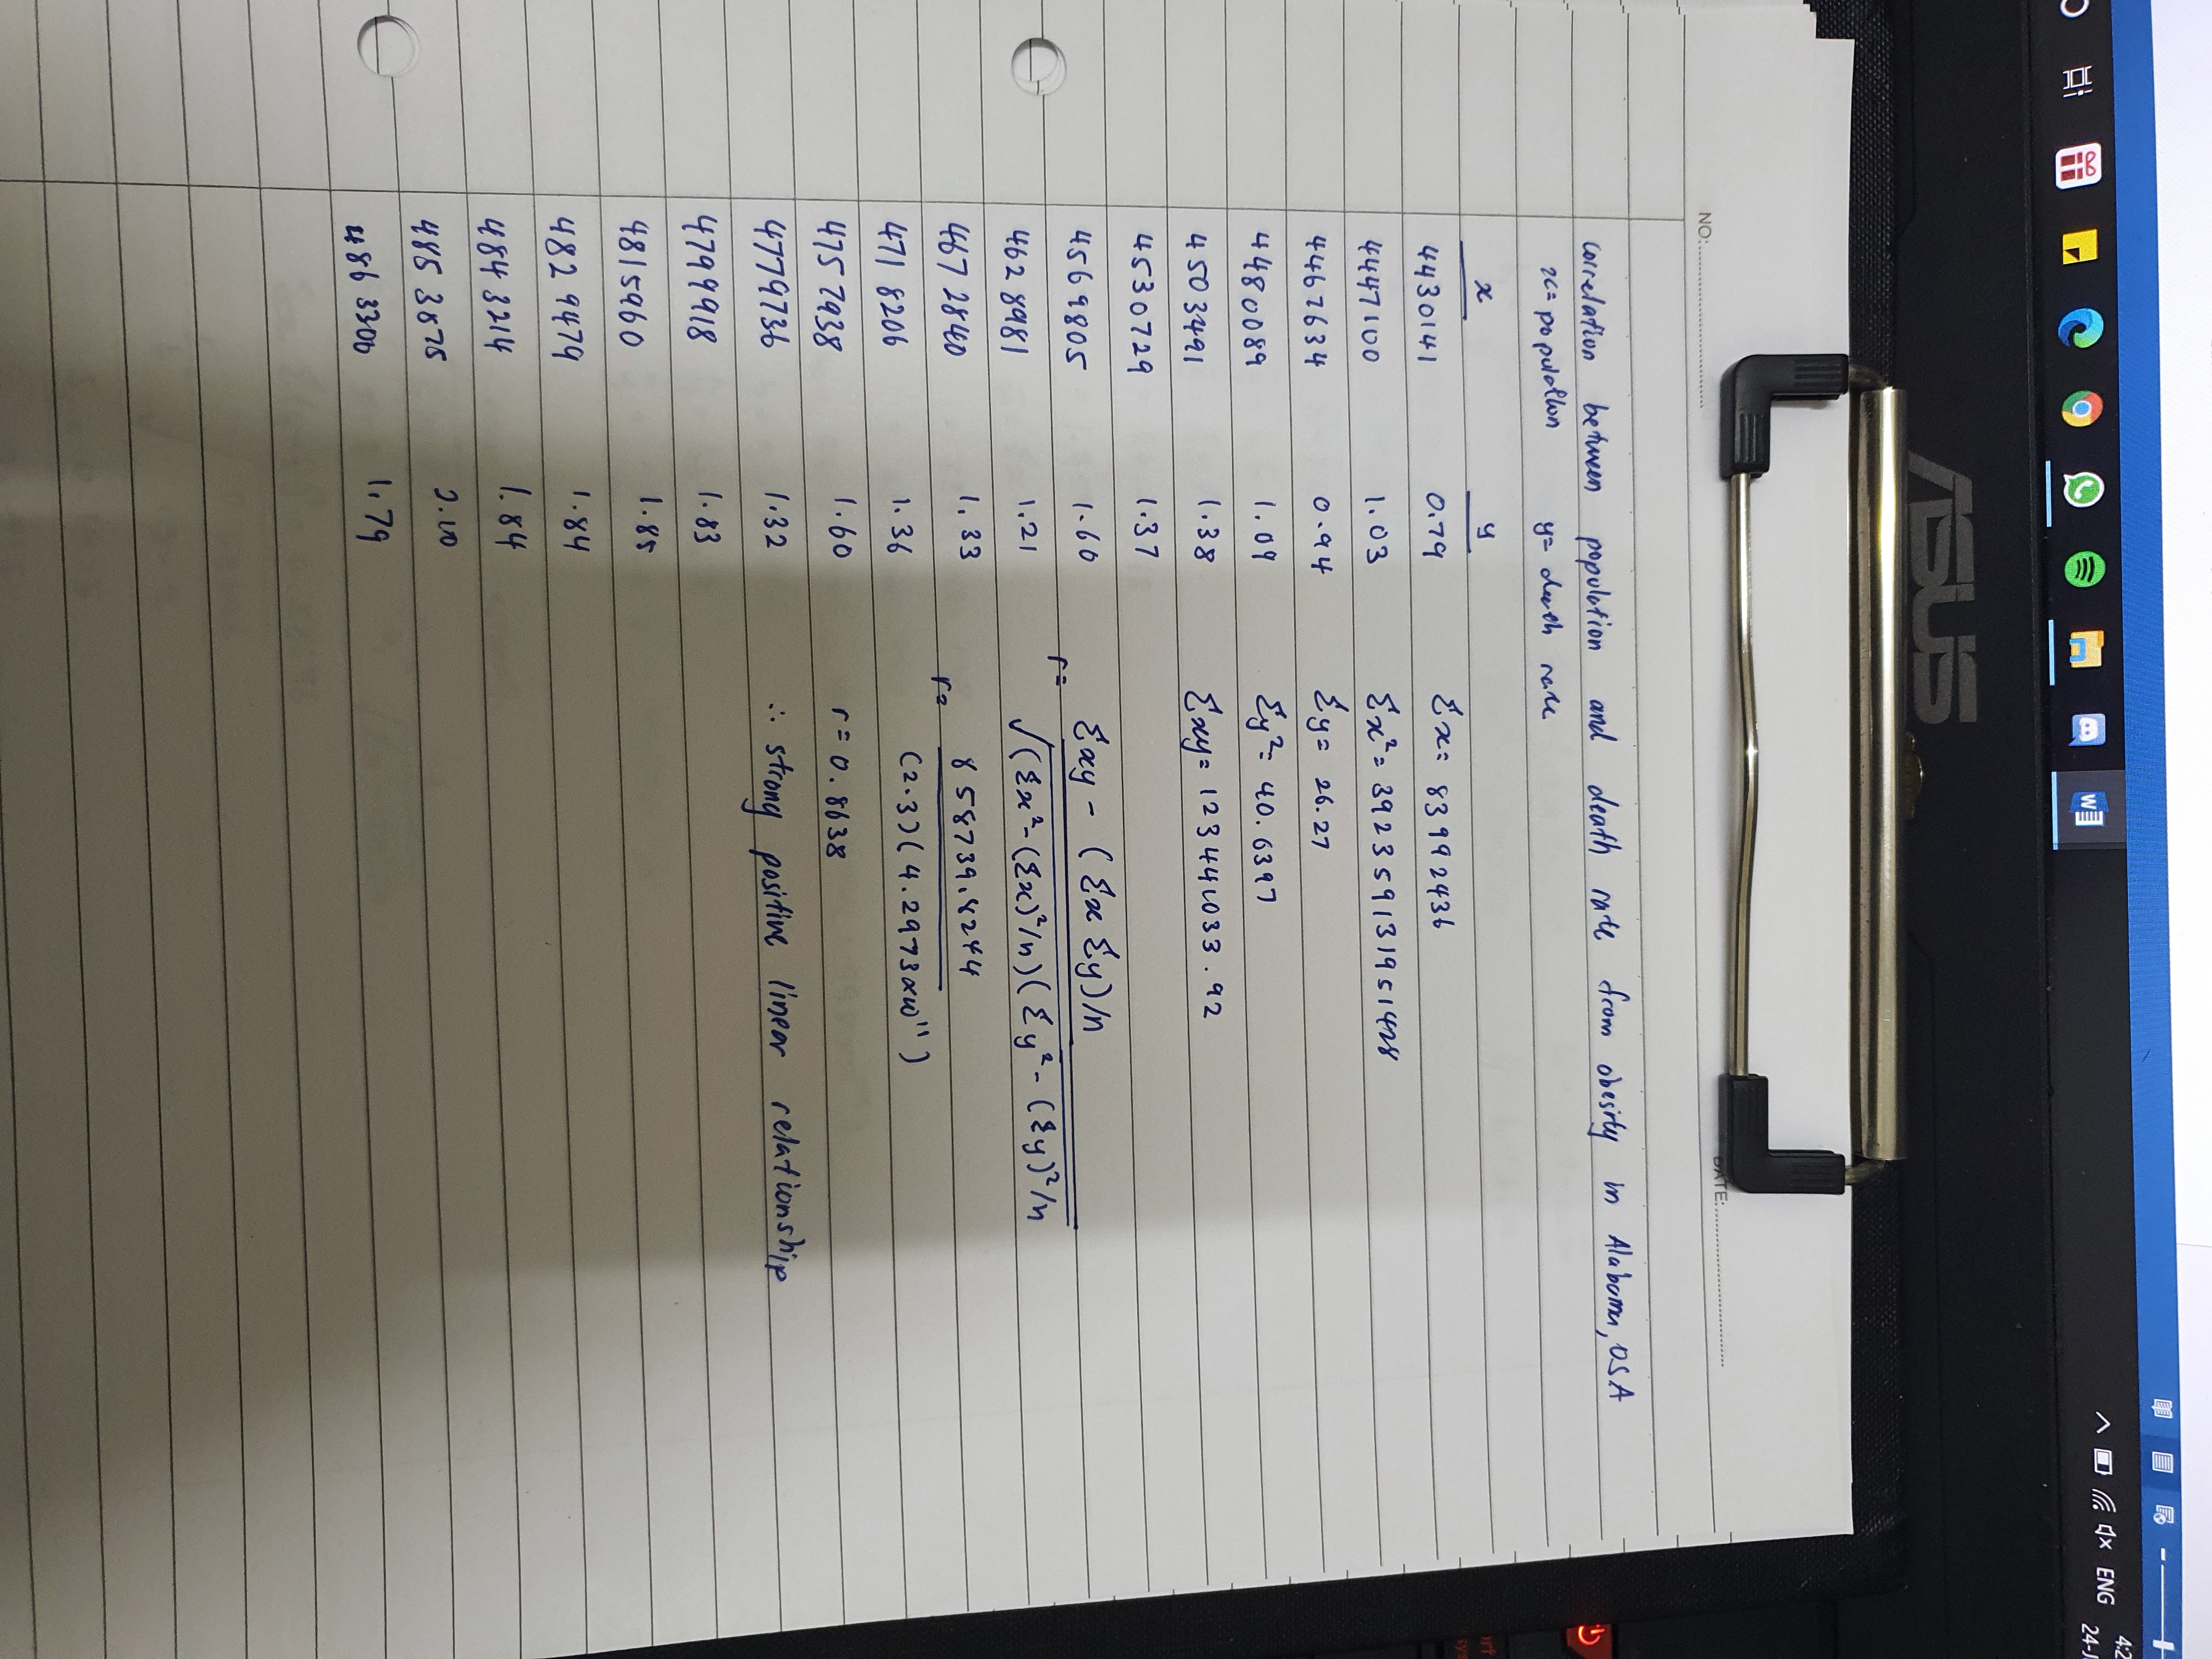 ASUS
4:2
ENG
24-J
NO:
DATE:
correlation between population and death rate from obesity in Alabama, USA
x = population y = death rate
x y
4430141 0.79
4447100 1.03
4467634 0.94
4480089 1.09
4503491 1.38
4530729 1.37
4569805 1.60
4628981 1.21
4672840 1.33
4718206 1.36
4757938 1.60
4779736 1.32
4799918 1.83
4815960 1.85
4829479 1.84
4843214 1.84
4853875 2.10
4863306 1.79
Σx = 83992436
Σx² = 3923591319 51428
Σy = 26.27
Σy² = 40.6397
Σxy = 123440033.92
r = Σxy - (ΣxΣy)/n
√(Σx² - (Σx)²/n)(Σy² - (Σy)²/n
r = 858739.8244
(2.3)(4.2973x10¹¹)
r = 0.8638
∴ strong positive linear relationship